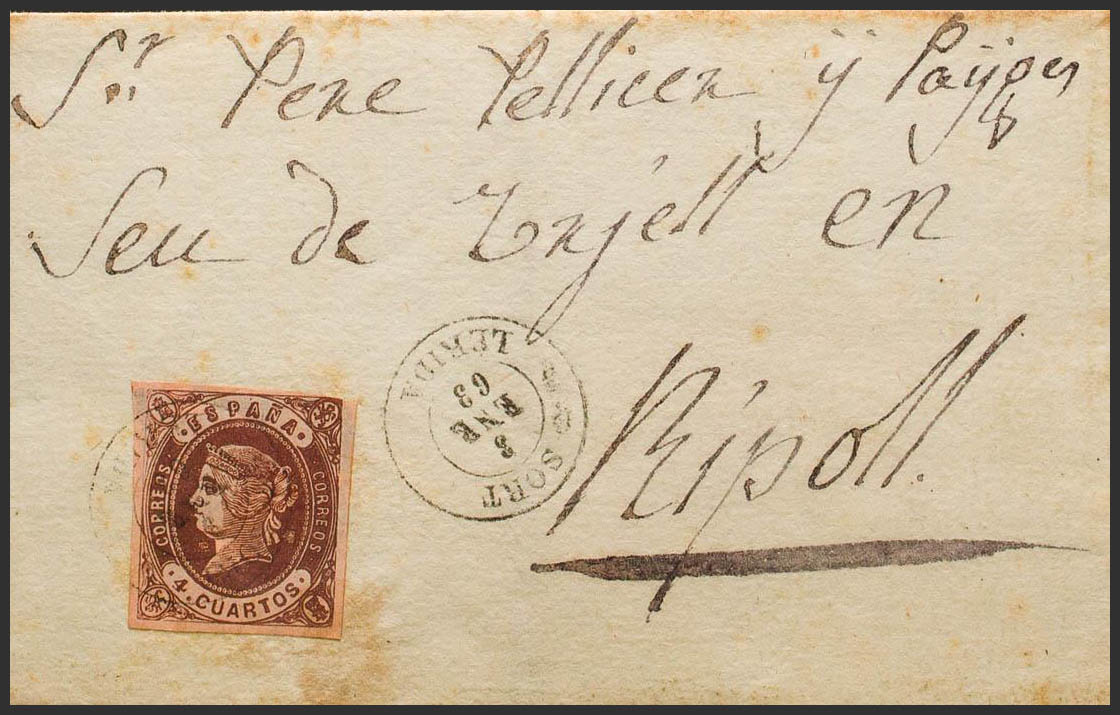 Sr Pere Pellicer ÿ Paÿges
Seu de Urjell en
Ripoll.
SORT
3
ENR
63
LERIDA
ESPAÑA
CORREOS
CORREOS
4 CUARTOS